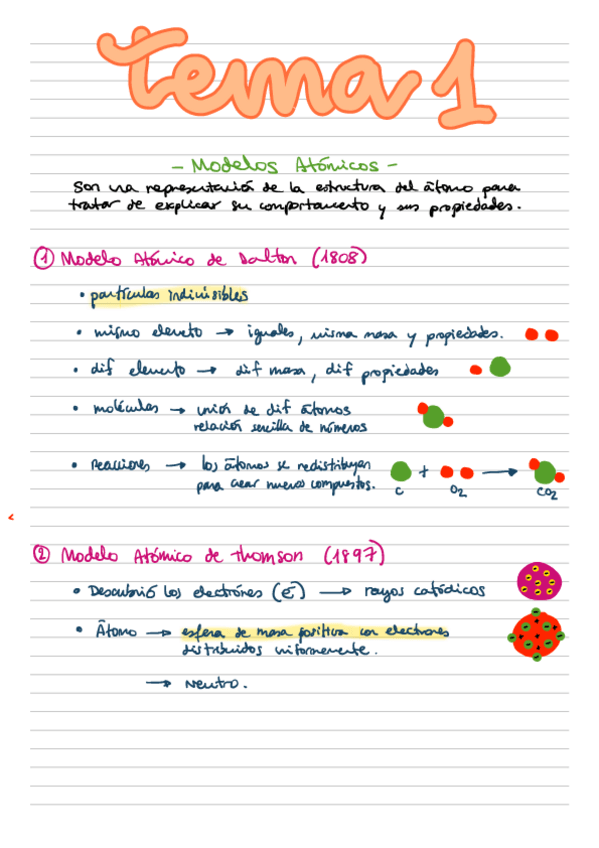 Tema 1
- Modelos Atómicos -
Son una representación de la estructura del átomo para
tratar de explicar su comportamiento y sus propiedades.
① Modelo Atómico de Dalton (1808)
• partículas indivisibles
• mismo elemento → iguales, misma masa y propiedades.
• dif elemento → dif masa, dif propiedades
• moléculas → unión de dif átomos
relación sencilla de números
• Reacciones → los átomos se redistribuyen
para crear nuevos compuestos.
C + O2 → CO2
② Modelo Atómico de Thomson (1897)
• Descubrió los electrónes (e-) → rayos catódicos
• Átomo → esfera de masa positiva con electrones
distribuidos uniformemente.
→ Neutro.